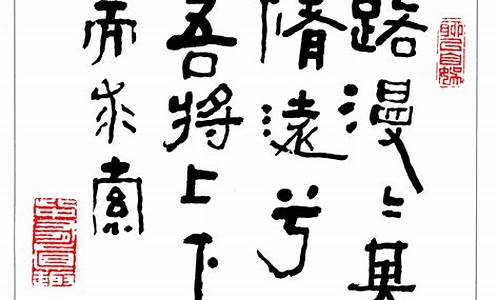 路漫〻其
脩遠兮
吾將上下
而求索